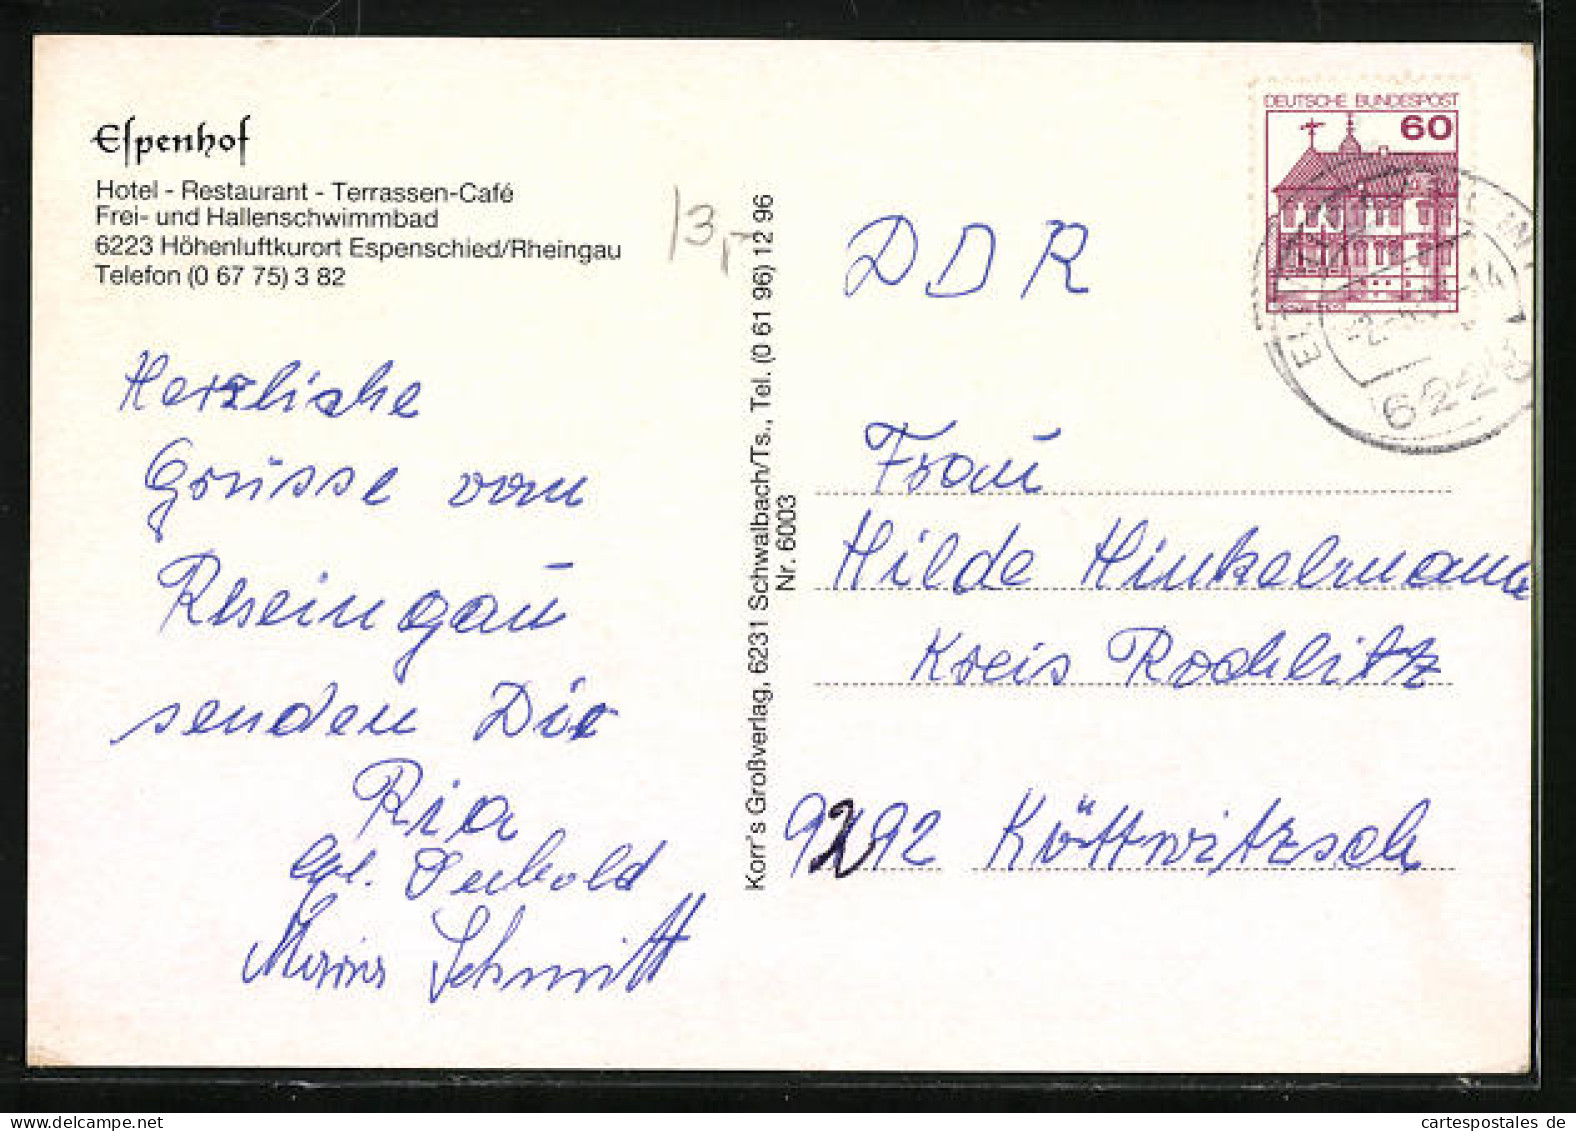 Espenhof
Hotel - Restaurant - Terrassen-Café
Frei- und Hallenschwimmbad
6223 Höhenluftkurort Espenschied/Rheingau
Telefon (0 67 75) 3 82
13,-
Herzliche
Grüsse vom
Rheingau
senden Dir
Ria
Schmitt
Korr's Großverlag, 6231 Schwalbach/Ts., Tel. (0 61 96) 12 96
Nr. 6003
DEUTSCHE BUNDESPOST
60
6223
DDR
Frau
Hilde Hinkelmann
Kreis Rochlitz
9292 Köttwitzsch
cartespostales de